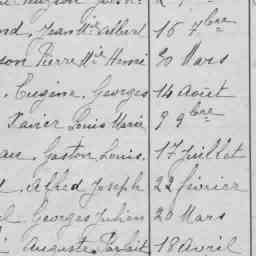 nd, Jean Mie Albert 16 7bre
son Pierre Mie Henri 30 Mars
. Eugène, Georges 14 Août
Xavier Louis Marie 9 9bre
au. Gaston Louis. 17 Juillet
Alfred Joseph 22 février
el Georges Julien 20 Mars
Auguste Parfait 18 Avril